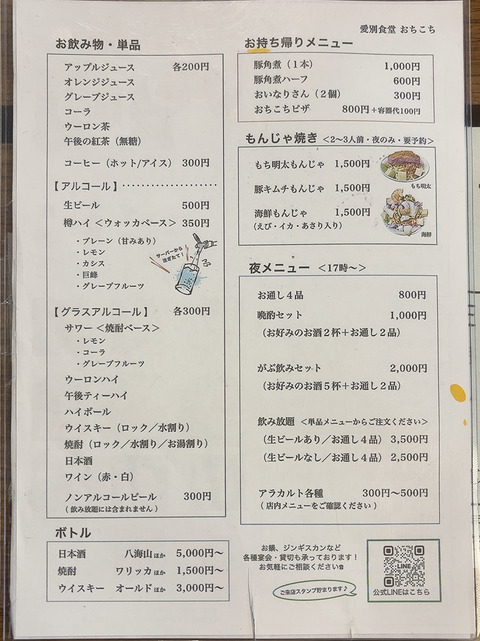 愛別食堂 おちこち
お飲み物・単品
アップルジュース 各200円
オレンジジュース
グレープジュース
コーラ
ウーロン茶
午後の紅茶（無糖）
コーヒー（ホット/アイス） 300円
【アルコール】
生ビール 500円
樽ハイ＜ウォッカベース＞ 350円
・プレーン（甘みあり）
・レモン
・カシス
・巨峰
・グレープフルーツ
サーバーから
注ぎたて！
【グラスアルコール】 各300円
サワー＜焼酎ベース＞
・レモン
・コーラ
・グレープフルーツ
ウーロンハイ
午後ティーハイ
ハイボール
ウイスキー（ロック／水割り）
焼酎（ロック／水割り／お湯割り）
日本酒
ワイン（赤・白）
ノンアルコールビール 300円
（飲み放題には含まれません）
ボトル
日本酒 八海山ほか 5,000円～
焼酎 ワリッカほか 1,500円～
ウイスキー オールドほか 3,000円～
お持ち帰りメニュー
豚角煮（1本） 1,000円
豚角煮ハーフ 600円
おいなりさん（2個） 300円
おちこちピザ 800円＋容器代100円
もんじゃ焼き ＜2～3人前・夜のみ・要予約＞
もち明太もんじゃ 1,500円
もち明太
豚キムチもんじゃ 1,500円
海鮮もんじゃ 1,500円
（えび・イカ・あさり入り）
海鮮
夜メニュー ＜17時～＞
お通し4品 800円
晩酌セット 1,000円
（お好みのお酒2杯＋お通し2品）
がぶ飲みセット 2,000円
（お好みのお酒5杯＋お通し2品）
飲み放題 ＜単品メニューからご注文ください＞
（生ビールあり／お通し4品） 3,500円
（生ビールなし／お通し4品） 2,500円
アラカルト各種 300円～500円
（店内メニューをご確認ください）
お鍋、ジンギスカンなど
各種宴会・貸切も承っております！
お気軽にご相談ください
ご来店スタンプ貯まります♪
LINE
公式LINEはこちら